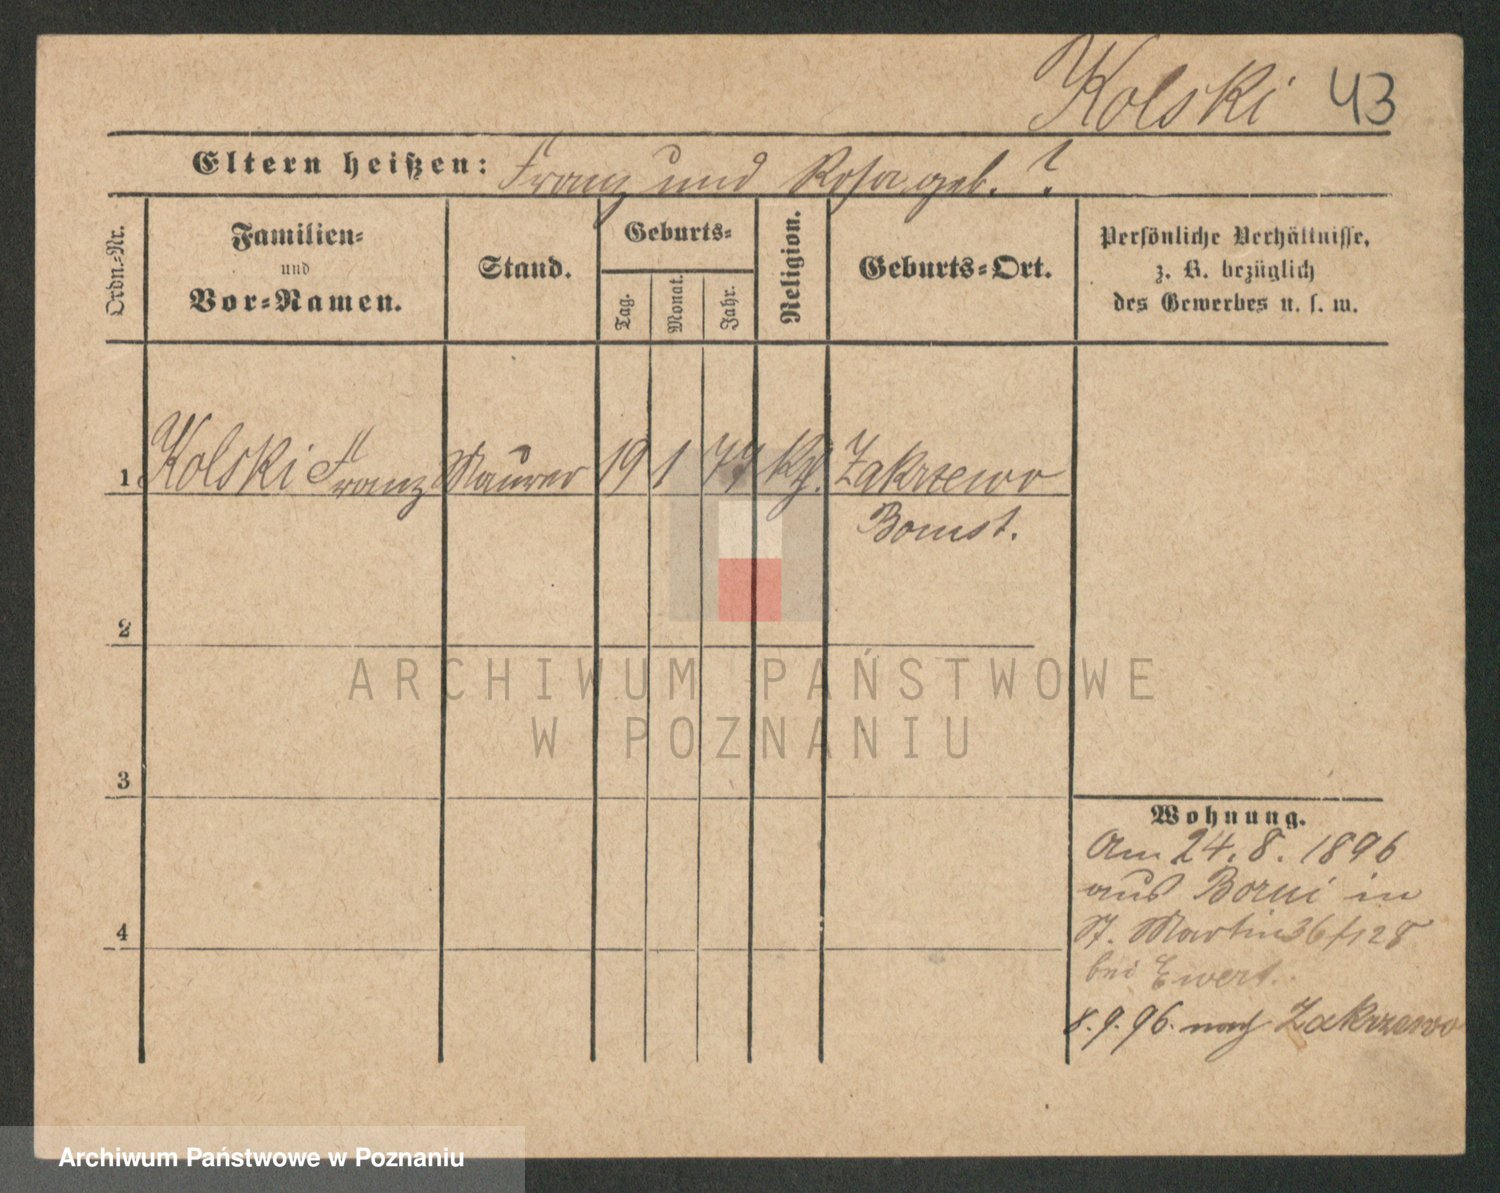 Kolski 43
Eltern heißen: Franz und Rosa geb. ?
Ordn.-Nr.
Familien-
und
Vor-Namen.
Stand.
Geburts-
Tag.
Monat.
Jahr.
Religion.
Geburts-Ort.
Persönliche Verhältnisse,
z. B. bezüglich
des Gewerbes u. s. w.
1 Kolski Franz Maurer 19 1 Kth. Zakrzewo
Bomst.
2
3
4
Wohnung.
Am 24. 8. 1896
aus Borui in
St. Martin 36/128
bei Ewert.
8.9.96. nach Zakrzewo
ARCHIWUM PAŃSTWOWE
W POZNANIU
Archiwum Państwowe w Poznaniu